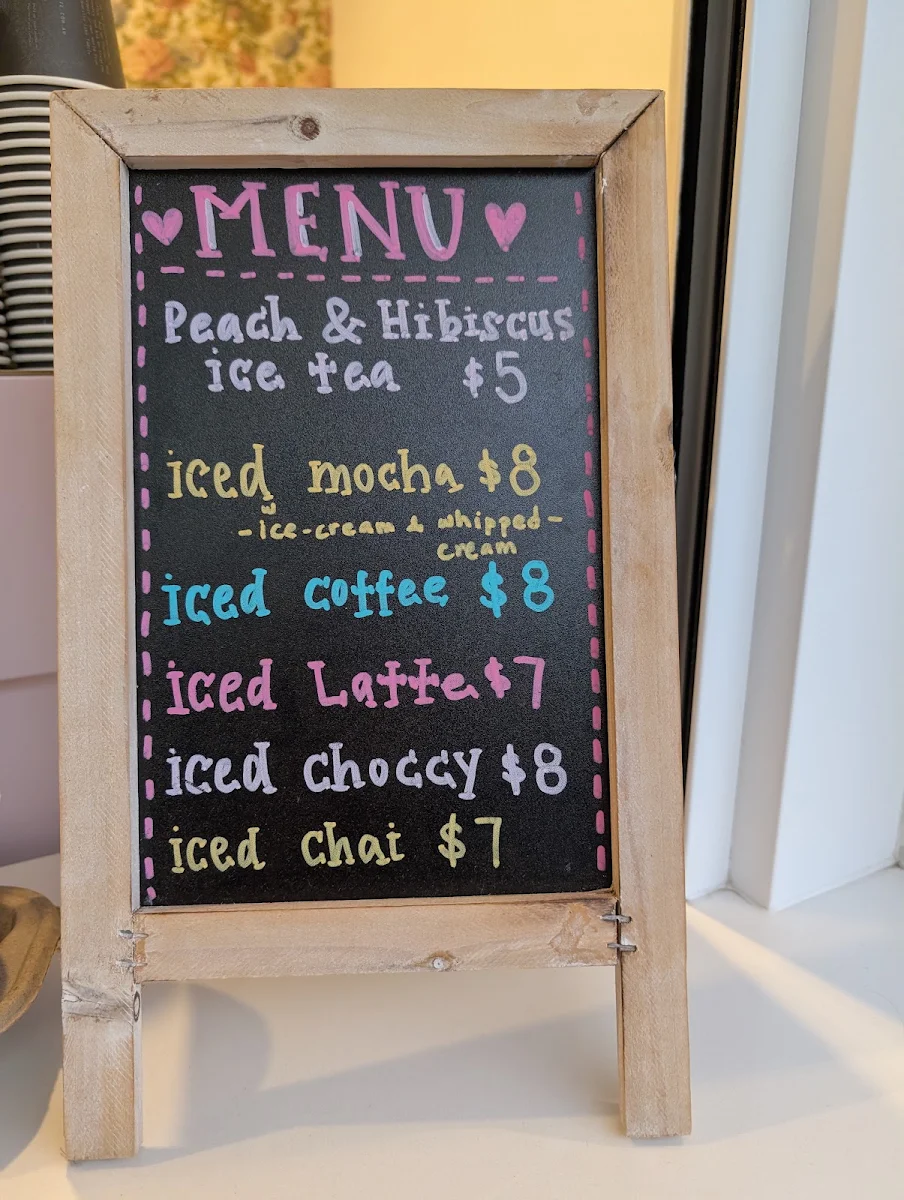 MENU
Peach & Hibiscus
ice tea $5
iced mocha $8
w
-ice-cream & whipped-
cream
iced coffee $8
iced Latte $7
iced choccy $8
iced chai $7